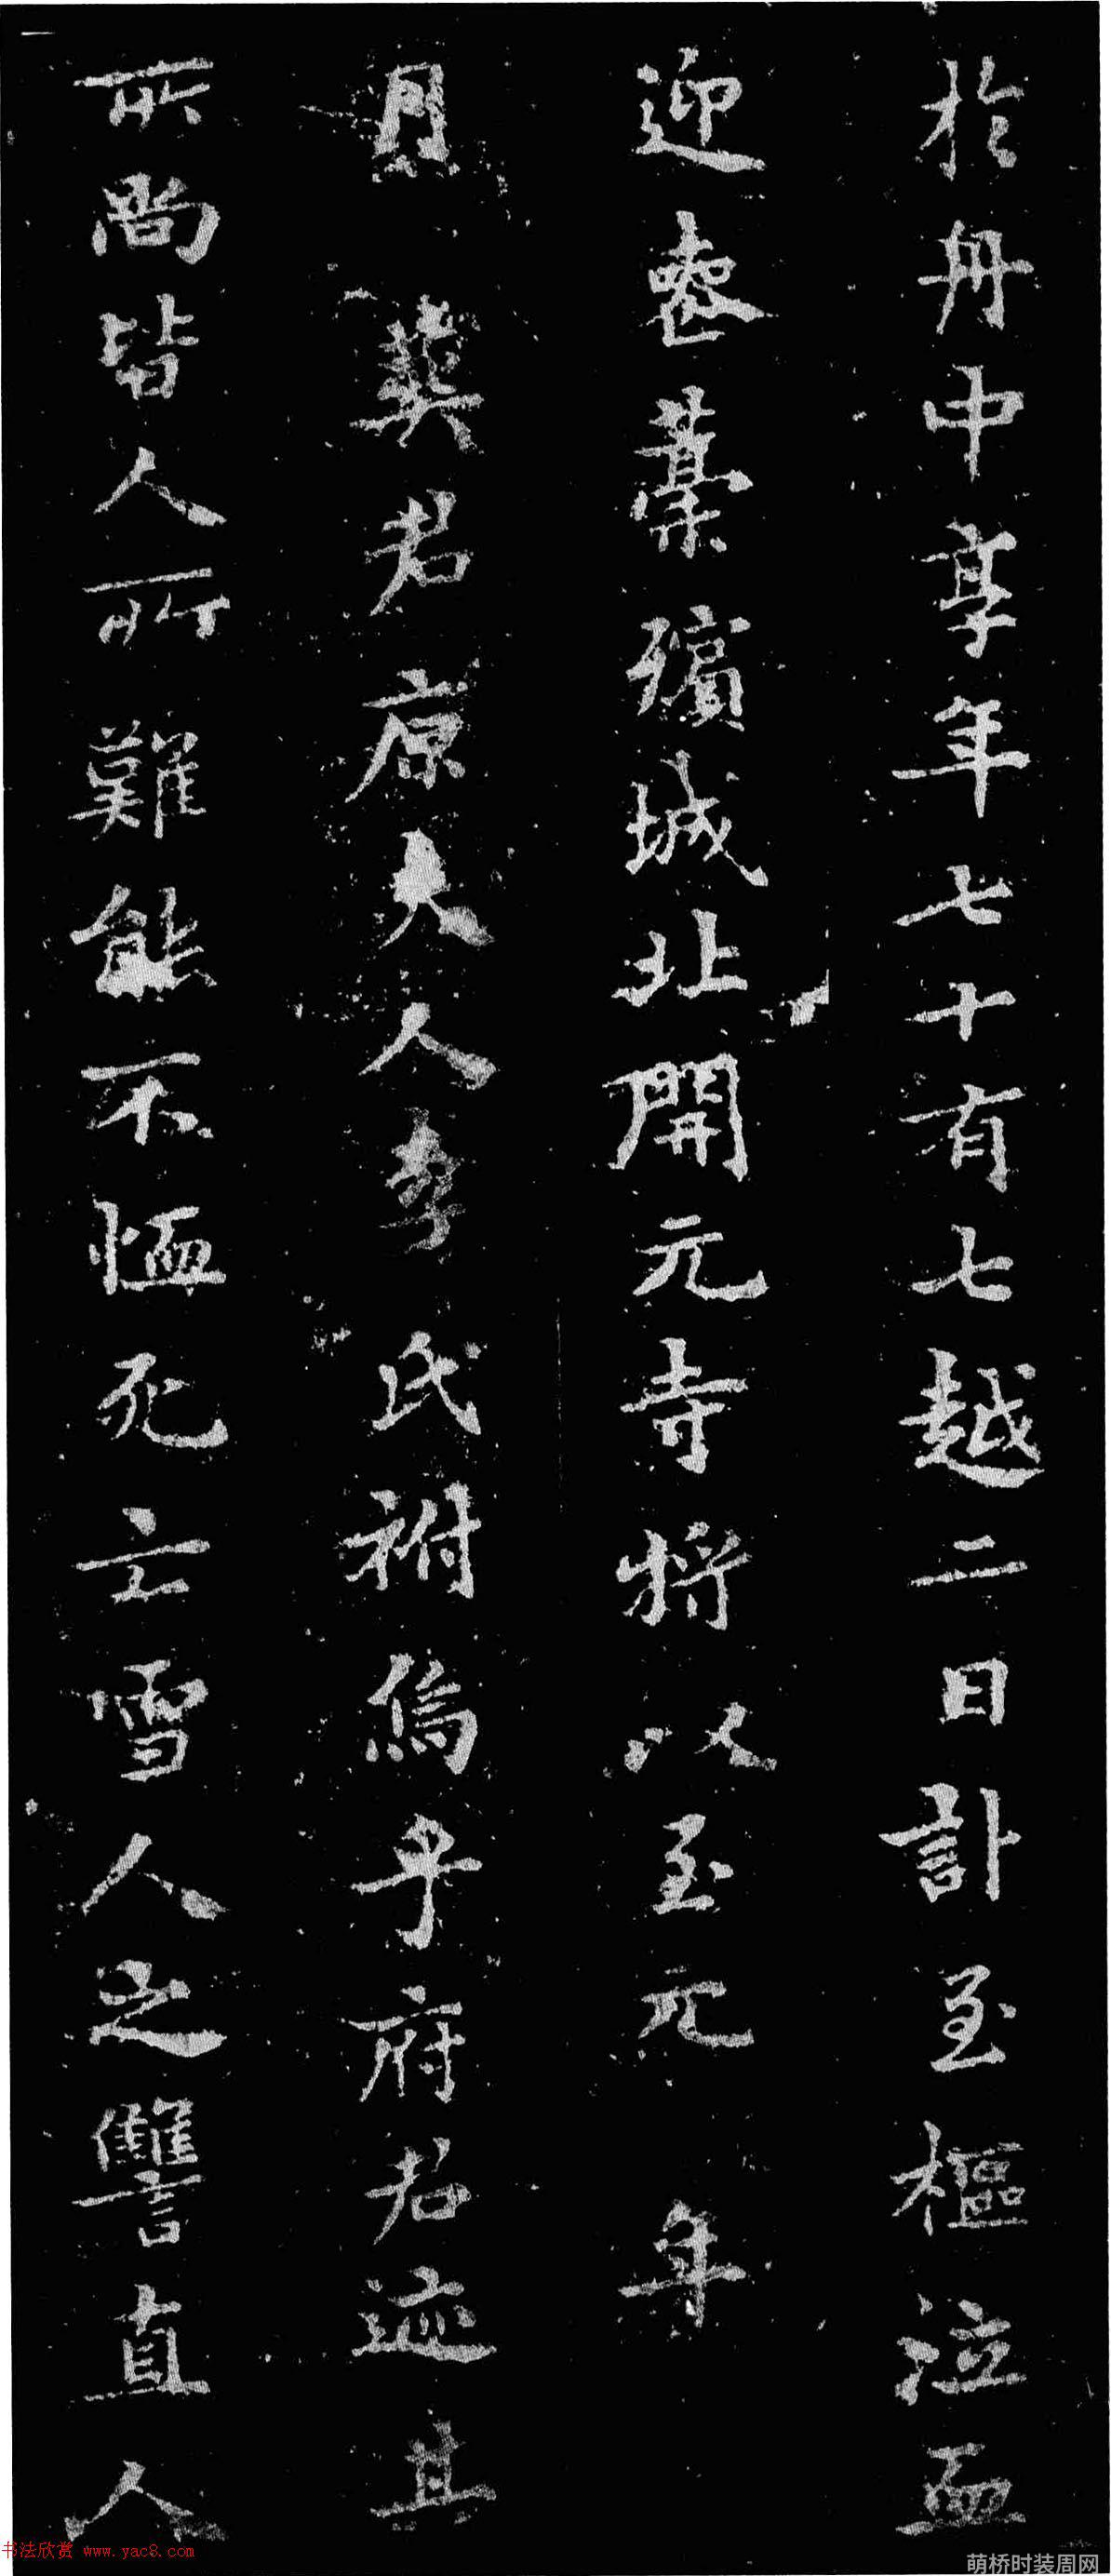 於舟中享年七十有七越二日訃至樞泣血
迎喪藁殯城北開元寺將以至元年
月葬君原夫人李氏祔烏乎府君迹其
所尚皆人所難能不恤死亡雪人之讐直人
一
书法欣赏 www.yac8.com
萌桥时装周网